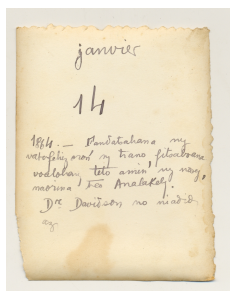 janvier
14
1864. — Nandatsahana ny
vatofehizoron' ny trano, fitsaboana
voalohany, teto amin' ny nosy,
naorina, tao Analakely.
Dr Davidson no niadidy
azy.